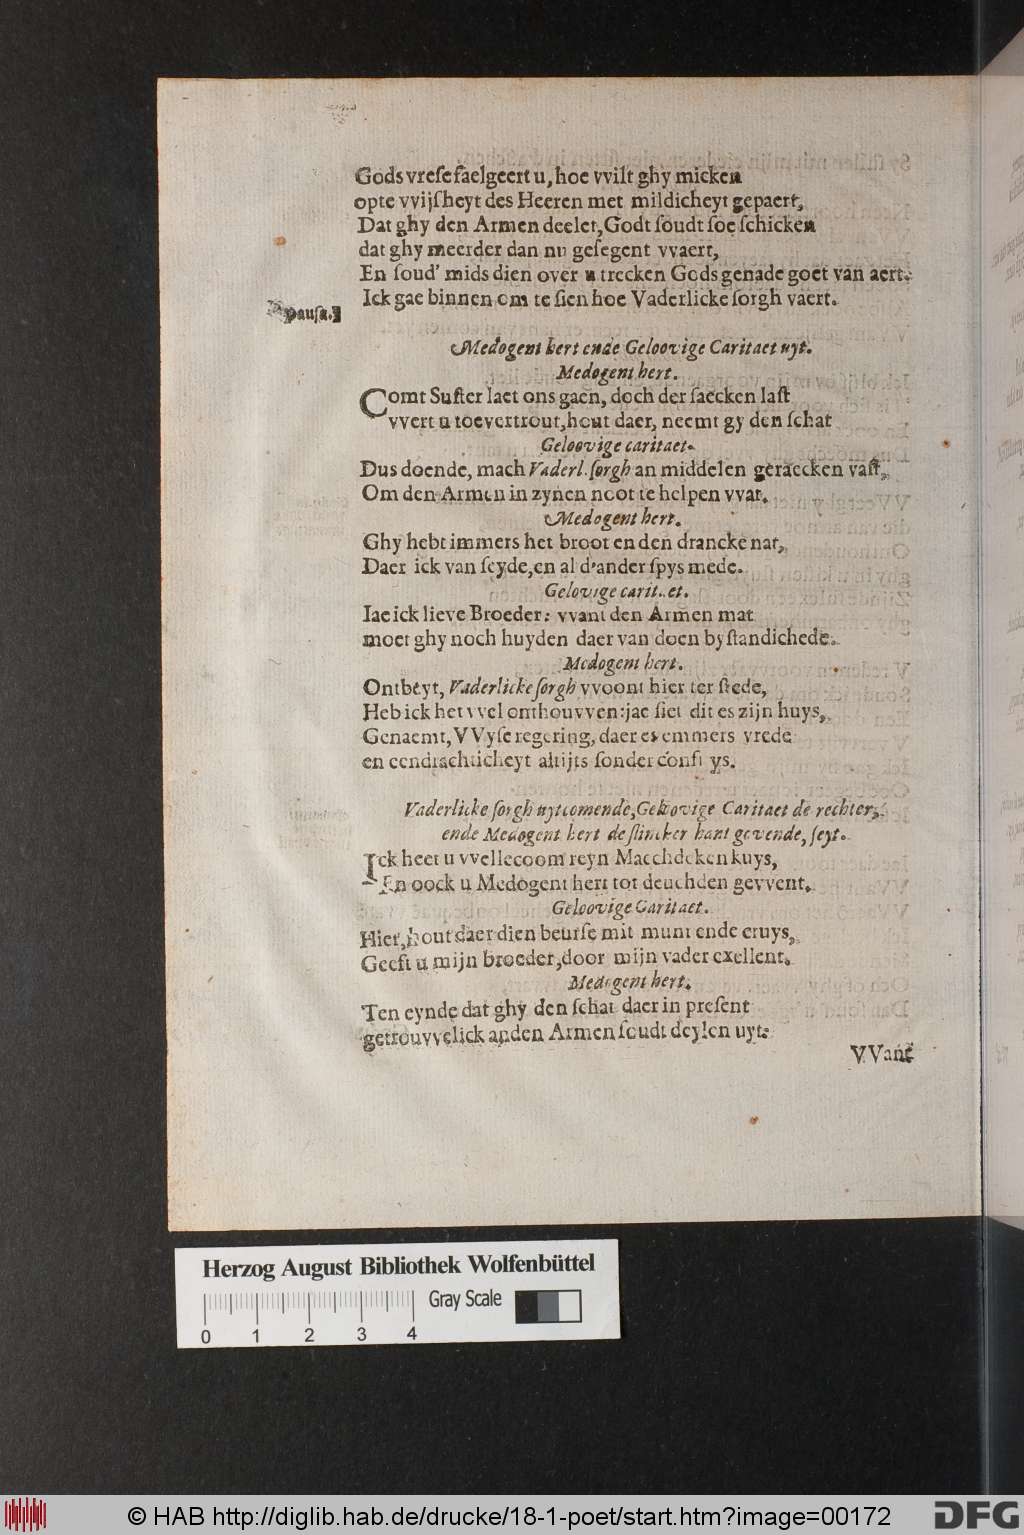 Gods vreſe faelgeert u, hoe vvilt ghy micken
opte vvijſheyt des Heeren met mildicheyt gepaert,
Dat ghy den Armen deelet, Godt ſoudt ſoe ſchicken
dat ghy meerder dan nu geſegent vvaert,
En ſoud' mids dien over u trecken Gods genade goet van aert.
Ick gae binnen om te ſien hoe Vaderlicke ſorgh vaert.
Pauſa.
Medogent hert ende Geloovige Caritaet uyt.
Medogent hert.
Comt Suſter laet ons gaen, doch der ſaecken laſt
vvert u toevertrout, hout daer, neemt gy den ſchat
Geloovige caritaet.
Dus doende, mach Vaderl. ſorgh an middelen geraecken vaſt,
Om den Armen in zynen noot te helpen vvat.
Medogent hert.
Ghy hebt immers het broot en den drancke nat,
Daer ick van ſeyde, en al d'ander ſpys mede.
Gelovige carit..et.
Iae ick lieve Broeder: vvant den Armen mat
moet ghy noch huyden daer van doen byſtandichede.
Medogent hert.
Ontbeyt, Vaderlicke ſorgh vvoont hier ter ſtede,
Heb ick het vvel onthouvven: jae ſiet dit es zijn huys,
Genaemt, VVyſe regering, daer es emmers vrede
en eendrachticheyt altijts ſonder confuys.
Vaderlicke ſorgh uytcomende, Geloovige Caritaet de rechter,
ende Medogent hert de ſlincker hant gevende, ſeyt.
Ick heet u vvellecoom reyn Maechdeken kuys,
En oock u Medogent hert tot deuchden gevvent.
Geloovige Caritaet.
Hier, hout daer dien beurſe mit munt ende cruys,
Geeft u mijn broeder, door mijn vader exellent.
Medogent hert.
Ten eynde dat ghy den ſchat daer in preſent
getrouvvelick anden Armen ſoudt deylen uyt.
VVant
Herzog August Bibliothek Wolfenbüttel
Gray Scale
0 1 2 3 4
© HAB http://diglib.hab.de/drucke/18-1-poet/start.htm?image=00172
DFG